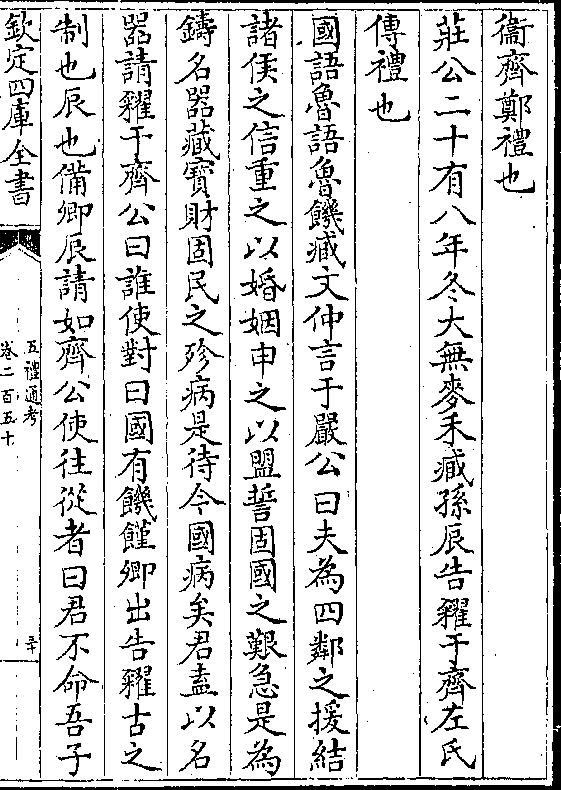 衞齊鄭禮也
莊公二十有八年冬大無麥禾臧孫辰告糴于齊左氏
傳禮也
國語魯語魯饑臧文仲言于嚴公曰夫為四鄰之援結
諸侯之信重之以婚姻申之以盟誓固國之艱急是為
鑄名器藏寶財固民之殄病是待今國病矣君盍以名
器請糴于齊公曰誰使對曰國有饑饉卿出告糴古之
制也辰也備卿辰請如齊公使往從者曰君不命吾子
欽定四庫全書
五禮通考
卷二百五十